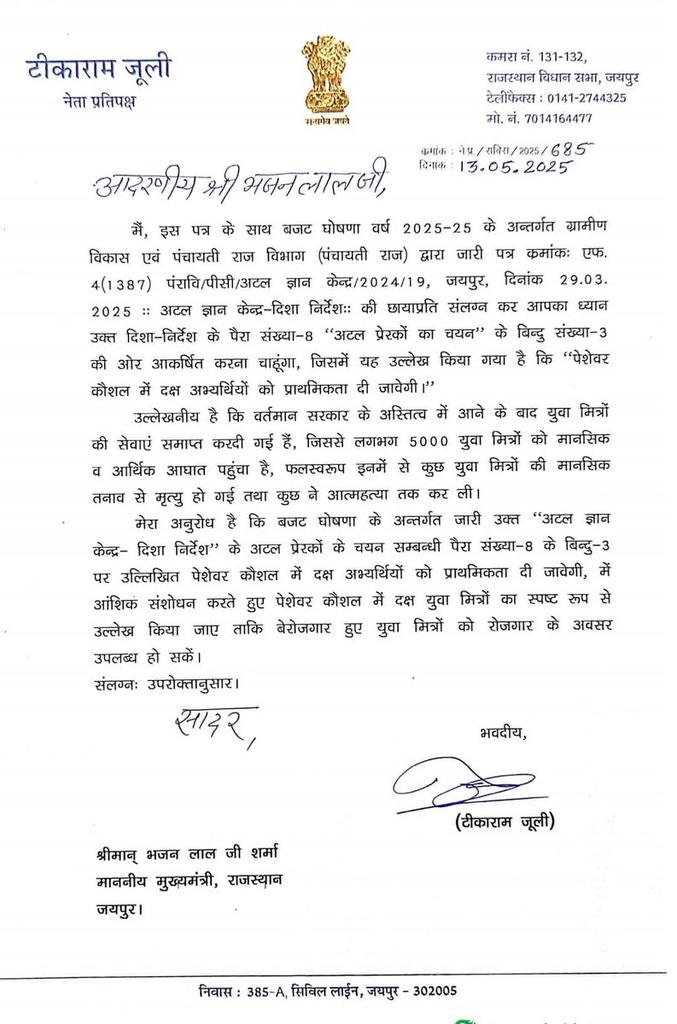 टीकाराम जूली
नेता प्रतिपक्ष
सत्यमेव जयते
कमरा नं. 131-132,
राजस्थान विधान सभा, जयपुर
टेलीफैक्स : 0141-2744325
मो. नं. 7014164477
क्रमांक : ने.प्र./राविस/2025/685
दिनांक : 13.05.2025
आदरणीय श्री भजनलाल जी,
मैं, इस पत्र के साथ बजट घोषणा वर्ष 2025-25 के अन्तर्गत ग्रामीण
विकास एवं पंचायती राज विभाग (पंचायती राज) द्वारा जारी पत्र क्रमांकः एफ.
4(1387) पंरावि/पीसी/अटल ज्ञान केन्द्र/2024/19, जयपुर, दिनांक 29.03.
2025 :: अटल ज्ञान केन्द्र-दिशा निर्देश:: की छायाप्रति संलग्न कर आपका ध्यान
उक्त दिशा-निर्देश के पैरा संख्या-8 "अटल प्रेरकों का चयन" के बिन्दु संख्या-3
की ओर आकर्षित करना चाहूंगा, जिसमें यह उल्लेख किया गया है कि "पेशेवर
कौशल में दक्ष अभ्यर्थियों को प्राथमिकता दी जावेगी।"
उल्लेखनीय है कि वर्तमान सरकार के अस्तित्व में आने के बाद युवा मित्रों
की सेवाएं समाप्त करदी गई हैं, जिससे लगभग 5000 युवा मित्रों को मानसिक
व आर्थिक आघात पहुंचा है, फलस्वरूप इनमें से कुछ युवा मित्रों की मानसिक
तनाव से मृत्यु हो गई तथा कुछ ने आत्महत्या तक कर ली।
मेरा अनुरोध है कि बजट घोषणा के अन्तर्गत जारी उक्त "अटल ज्ञान
केन्द्र- दिशा निर्देश" के अटल प्रेरकों के चयन सम्बन्धी पैरा संख्या-8 के बिन्दु-3
पर उल्लिखित पेशेवर कौशल में दक्ष अभ्यर्थियों को प्राथमिकता दी जावेगी, में
आंशिक संशोधन करते हुए पेशेवर कौशल में दक्ष युवा मित्रों का स्पष्ट रूप से
उल्लेख किया जाए ताकि बेरोजगार हुए युवा मित्रों को रोजगार के अवसर
उपलब्ध हो सकें।
संलग्नः उपरोक्तानुसार।
सादर,
भवदीय,
(टीकाराम जूली)
श्रीमान् भजन लाल जी शर्मा
माननीय मुख्यमंत्री, राजस्थान
जयपुर।
निवास : 385-A, सिविल लाईन, जयपुर - 302005